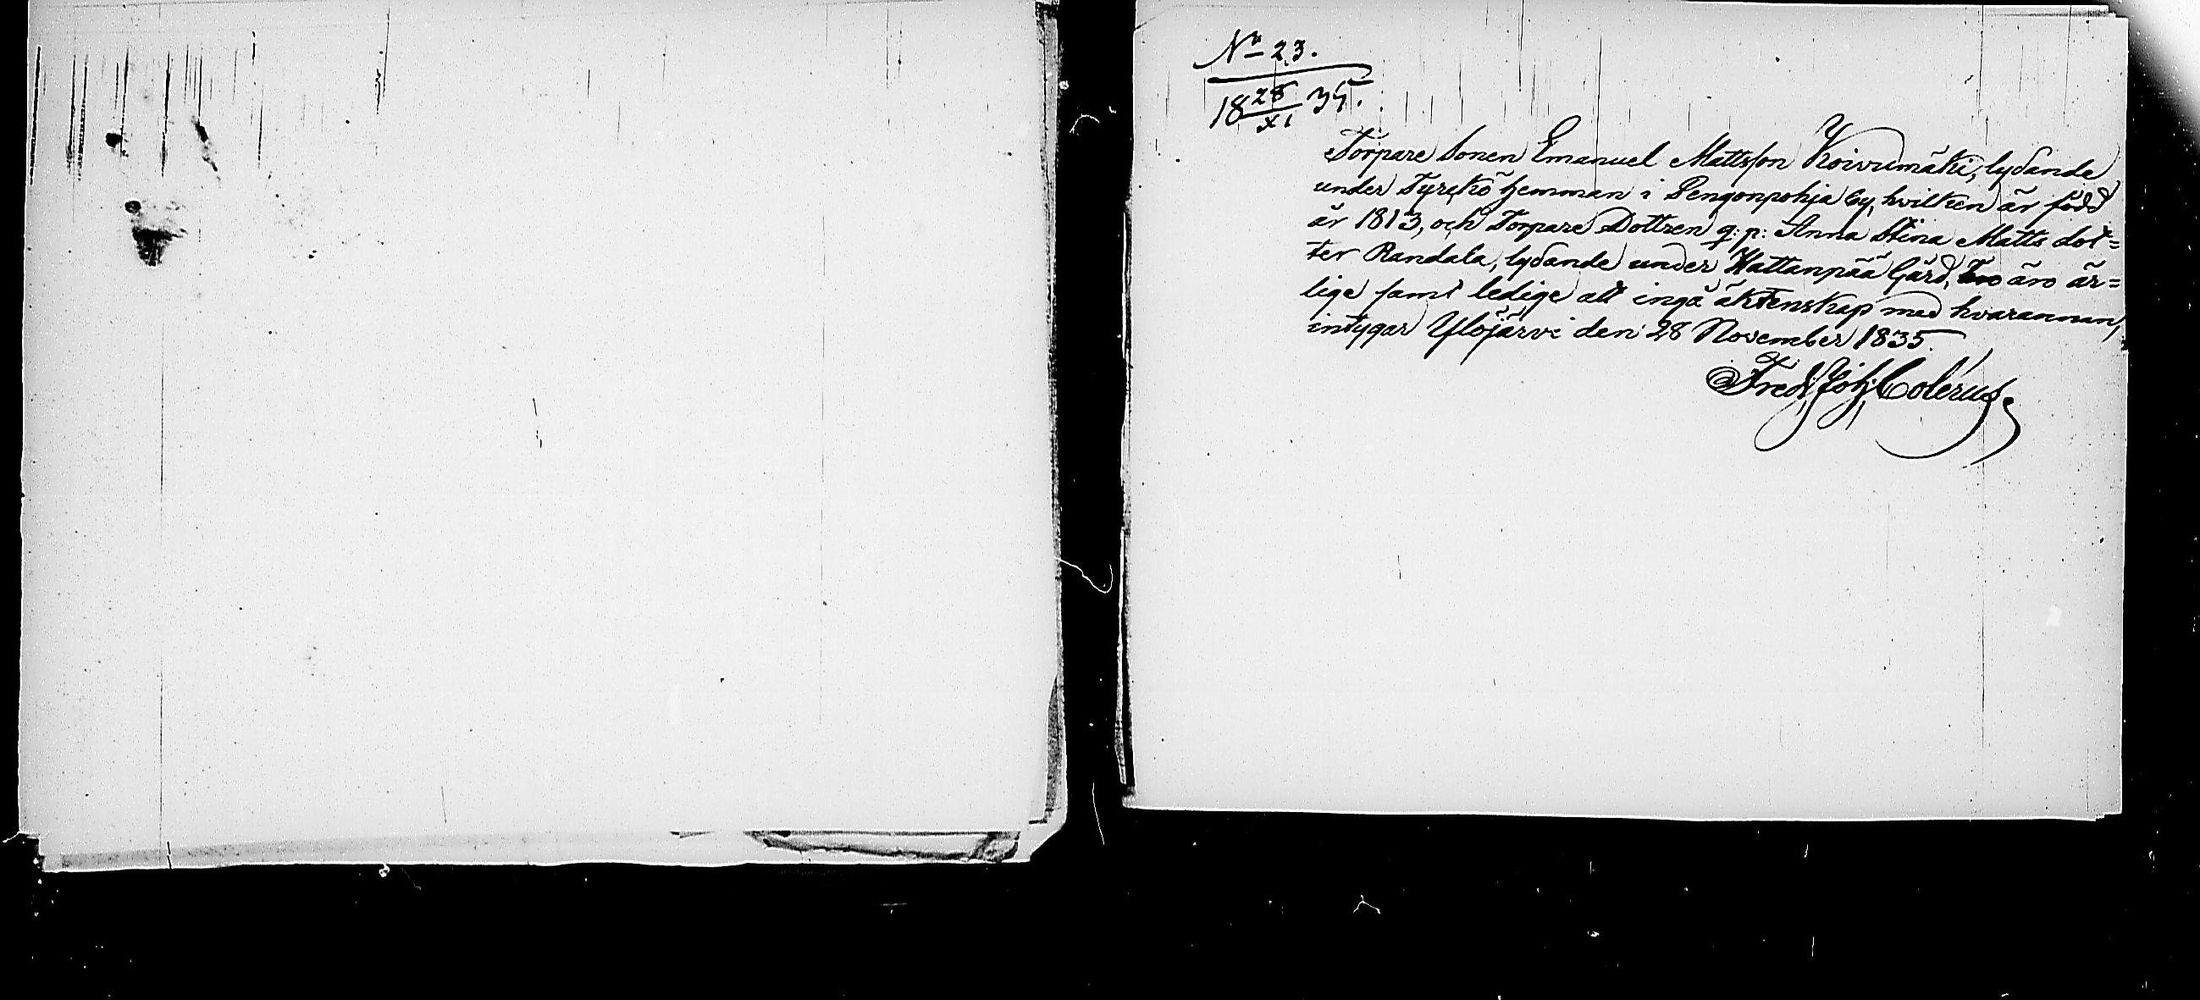 No 23.
18 28/XI 35.
Torpare Sonen Emanuel Mattsson Koivumäki, lydande
under Tyrckö hemman i Pengonpohja by, hvilken är född
år 1813, och Torpare Dottren q: p: Anna Stina Matts dot=
ter Randala, lydande under Hattanpää Gård, äro är=
lige samt ledige att ingå äktenskap med hvarannan,
intygar Ylöjärvi den 28 November 1835.
Fred. Joh. Colérus.